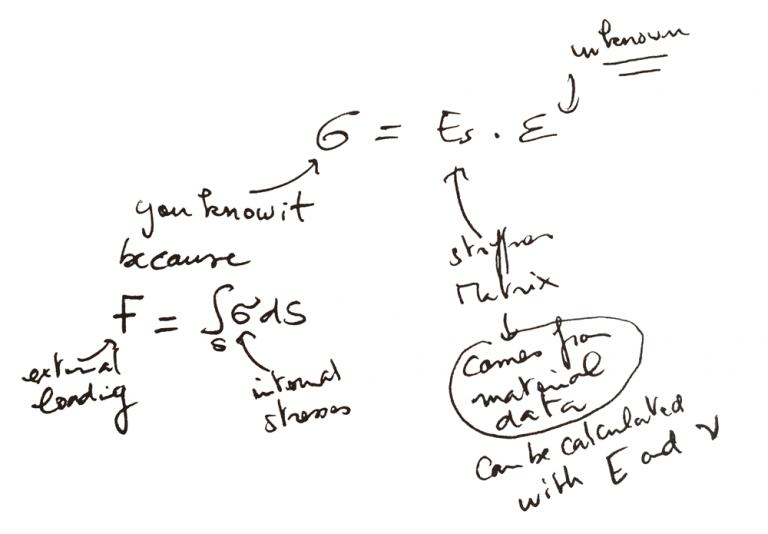 unknown
σ = Es . ε
you know it
because
F = ∫s σ dS
external
loading
internal
stresses
stiffness
Matrix
Comes from
material
data
Can be calculated
with E and ν